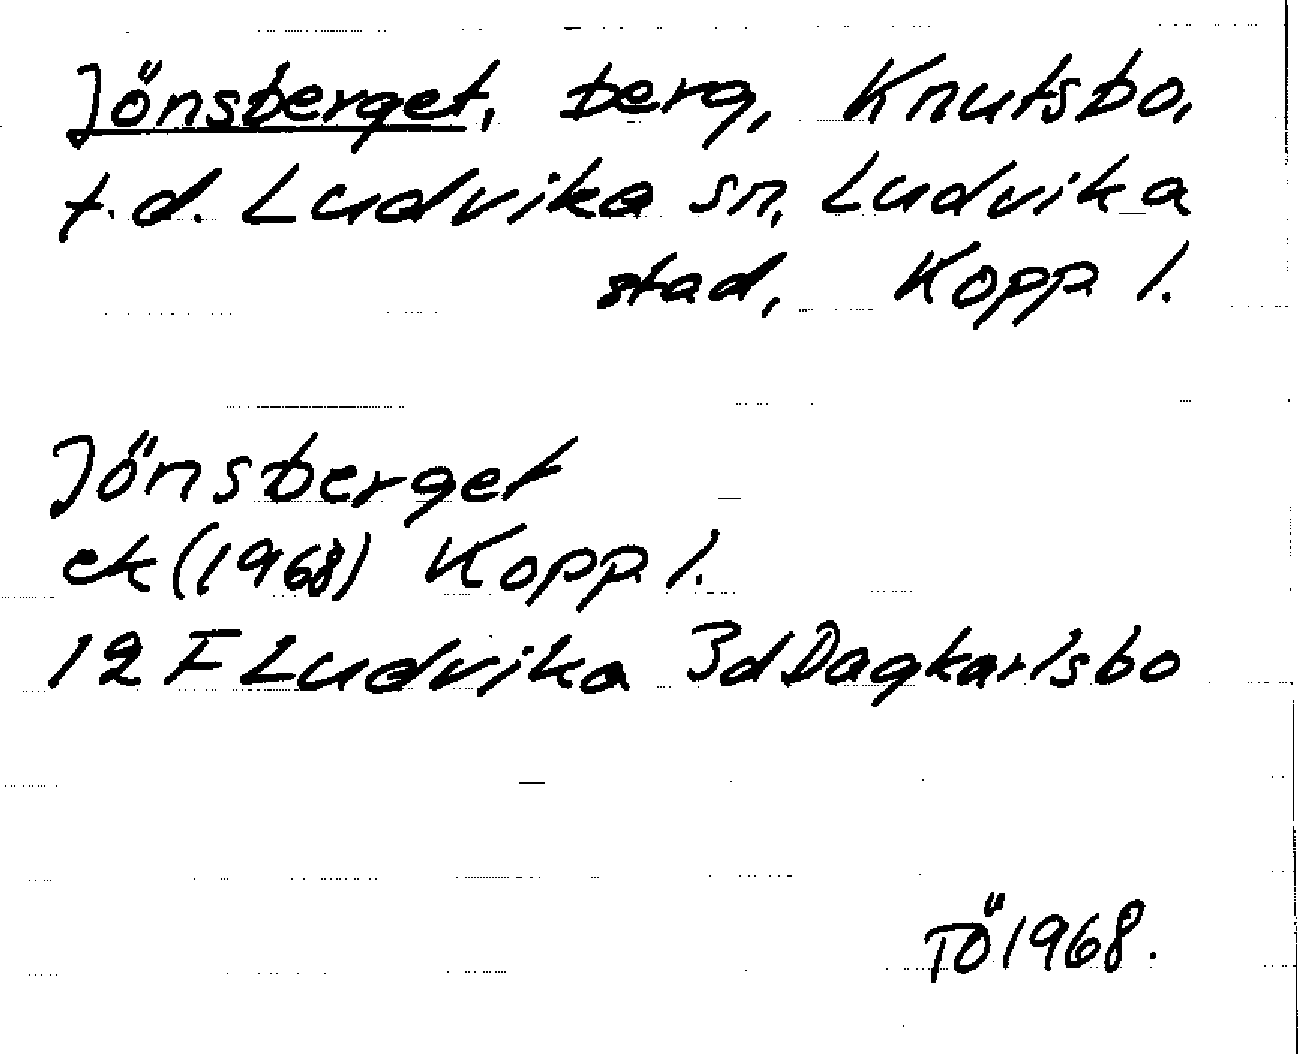 Jönsberget, berg, Knutsbo,
t.d. Ludvika sn, Ludvika
stad, Kopp l.
Jönsberget
ek (1968) Kopp l.
12 F Ludvika 3d Dagkarlsbo
TÖ 1968.